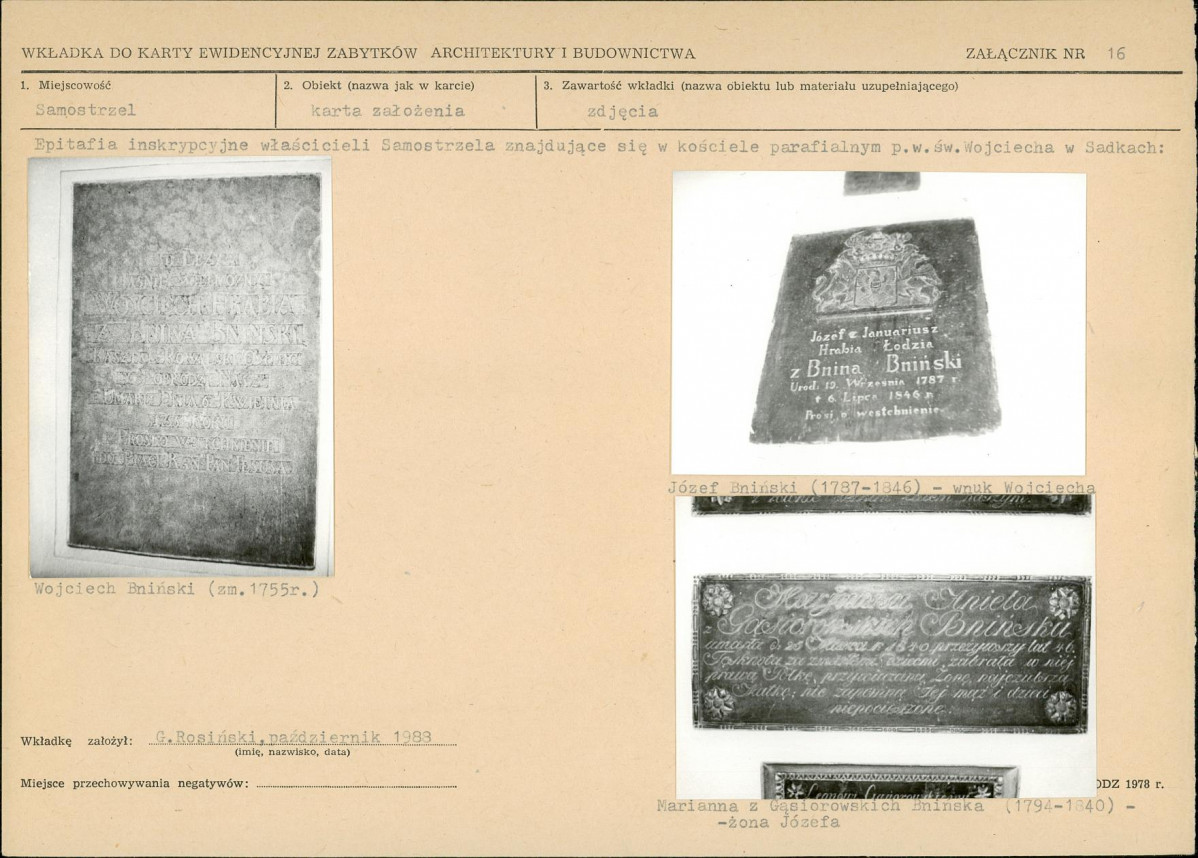 WKŁADKA DO KARTY EWIDENCYJNEJ ZABYTKÓW ARCHITEKTURY I BUDOWNICTWA
ZAŁĄCZNIK NR 16
1. Miejscowość
Samostrzel
2. Obiekt (nazwa jak w karcie)
karta założenia
3. Zawartość wkładki (nazwa obiektu lub materiału uzupełniającego)
zdjęcia
Epitafia inskrypcyjne właścicieli Samostrzela znajdujące się w kościele parafialnym p.w.św.Wojciecha w Sadkach:
WOYCIECH HRABIA
BNINSKI
Wojciech Bniński (zm.1755r.)
Józef z Januariusz
Hrabia Łodzia
z Bnina Bniński
Urod. 19. Września 1787 r
† 6. Lipca 1846 r.
Prosi o westchnienie.
Józef Bniński (1787-1846) - wnuk Wojciecha
Aniela
z Gąsiorowskich Bnińska
umarła d. 25 Marca r. 1840 przeżywszy lat 46.
zabrała w niej
prawą Polkę, Żonę, najczulszą
Matkę; nie zapomną Jej mąż i dzieci
niepocieszone.
Marianna z Gąsiorowskich Bnińska (1794-1840) -
-żona Józefa
Wkładkę założył: G.Rosiński,październik 1988
(imię, nazwisko, data)
Miejsce przechowywania negatywów:
ODZ 1978 r.